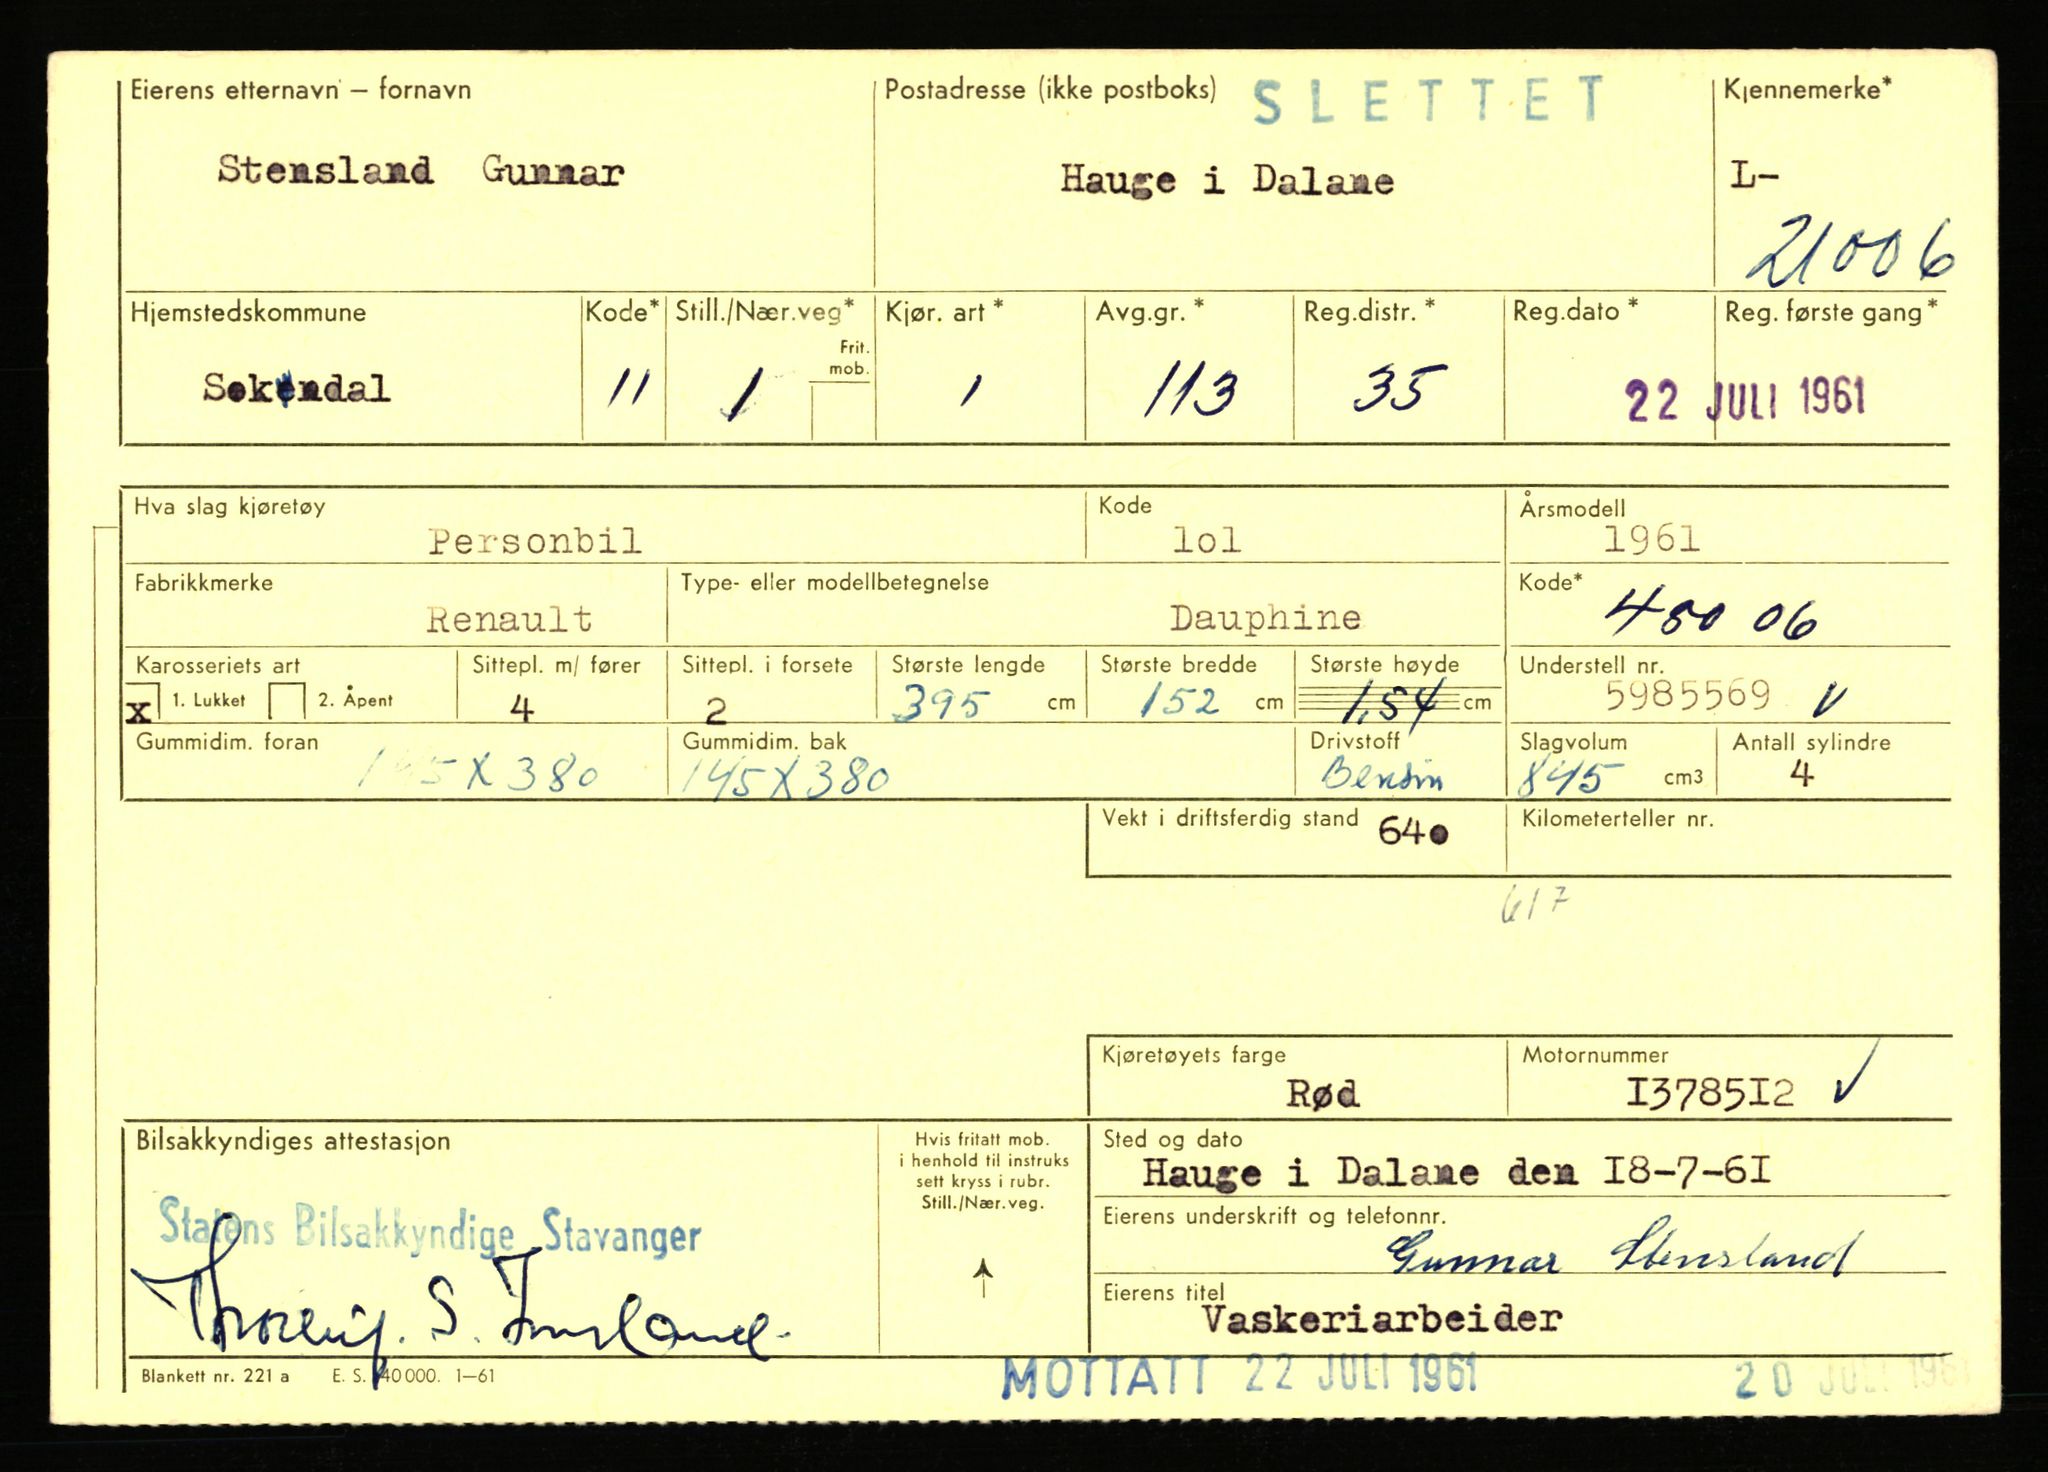 Eierens etternavn – fornavn
Postadresse (ikke postboks) SLETTET
Kjennemerke*
Stensland Gunnar
Hauge i Dalane
L-
21006
Hjemstedskommune
Kode*
Still./Nær.veg*
Frit. mob.
Kjør. art*
Avg.gr.*
Reg.distr.*
Reg.dato*
Reg. første gang*
Sokndal
11
1
1
113
35
22 JULI 1961
Hva slag kjøretøy
Kode
Årsmodell
Personbil
lol
1961
Fabrikkmerke
Type- eller modellbetegnelse
Kode*
Renault
Dauphine
450 06
Karosseriets art
Sittepl. m/ fører
Sittepl. i forsete
Største lengde
Største bredde
Største høyde
Understell nr.
x 1. Lukket 2. Åpent
4
2
395 cm
152 cm
1,54 cm
5985569 V
Gummidim. foran
Gummidim. bak
Drivstoff
Slagvolum
Antall sylindre
145 X 380
145 X 380
Bensin
845 cm3
4
Vekt i driftsferdig stand 640
Kilometerteller nr.
617
Kjøretøyets farge
Motornummer
Rød
I3785I2 V
Bilsakkyndiges attestasjon
Hvis fritatt mob.
i henhold til instruks
sett kryss i rubr.
Still./Nær.veg.
Sted og dato
Hauge i Dalane den I8-7-6I
Statens Bilsakkyndige Stavanger
Eierens underskrift og telefonnr.
Gunnar Stensland
Eierens titel
Vaskeriarbeider
Blankett nr. 221 a E. S. 40 000. 1–61
MOTTATT 22 JULI 1961
20 JULI 1961